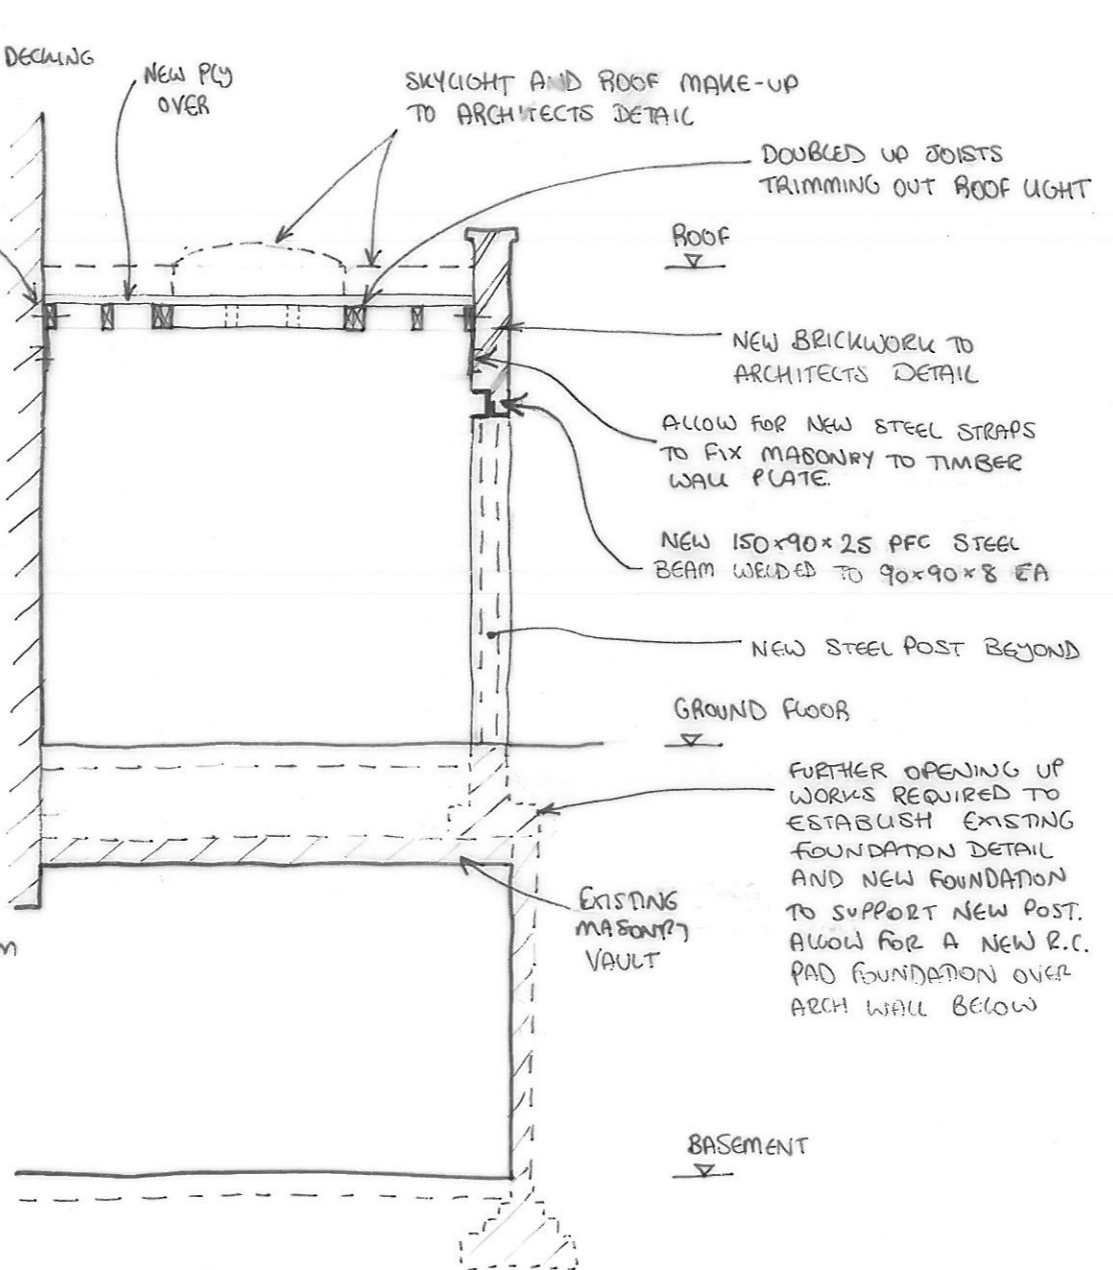 DECKING
NEW PLY
OVER
SKYLIGHT AND ROOF MAKE-UP
TO ARCHITECTS DETAIL
DOUBLED UP JOISTS
TRIMMING OUT ROOF LIGHT
ROOF
NEW BRICKWORK TO
ARCHITECTS DETAIL
ALLOW FOR NEW STEEL STRAPS
TO FIX MASONRY TO TIMBER
WALL PLATE.
NEW 150x90x25 PFC STEEL
BEAM WELDED TO 90x90x8 EA
NEW STEEL POST BEYOND
GROUND FLOOR
FURTHER OPENING UP
WORKS REQUIRED TO
ESTABLISH EXISTING
FOUNDATION DETAIL
AND NEW FOUNDATION
TO SUPPORT NEW POST.
ALLOW FOR A NEW R.C.
PAD FOUNDATION OVER
ARCH WALL BELOW
EXISTING
MASONRY
VAULT
BASEMENT